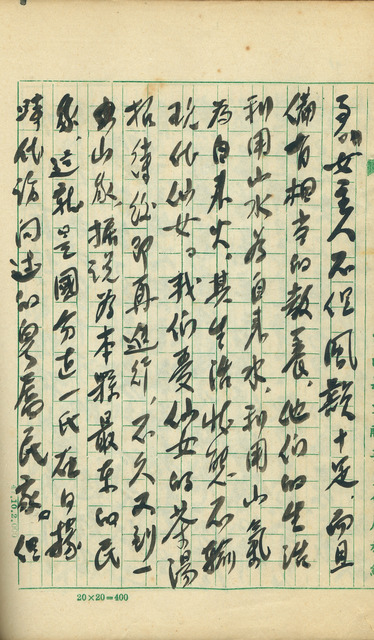 子。女主人不但風韻十足，而且
備有相當的教養，他們的生活
利用山水為自來水，利用山氣
為自來火。其生活狀態不輸
現代仙女。我們受仙女的茶湯
招待後即再進行，不久又到一
出山家，據說為本縣最東的民
家，這就是國分直一氏在日據
時代訪問過的粵籍民家。但
20×20=400